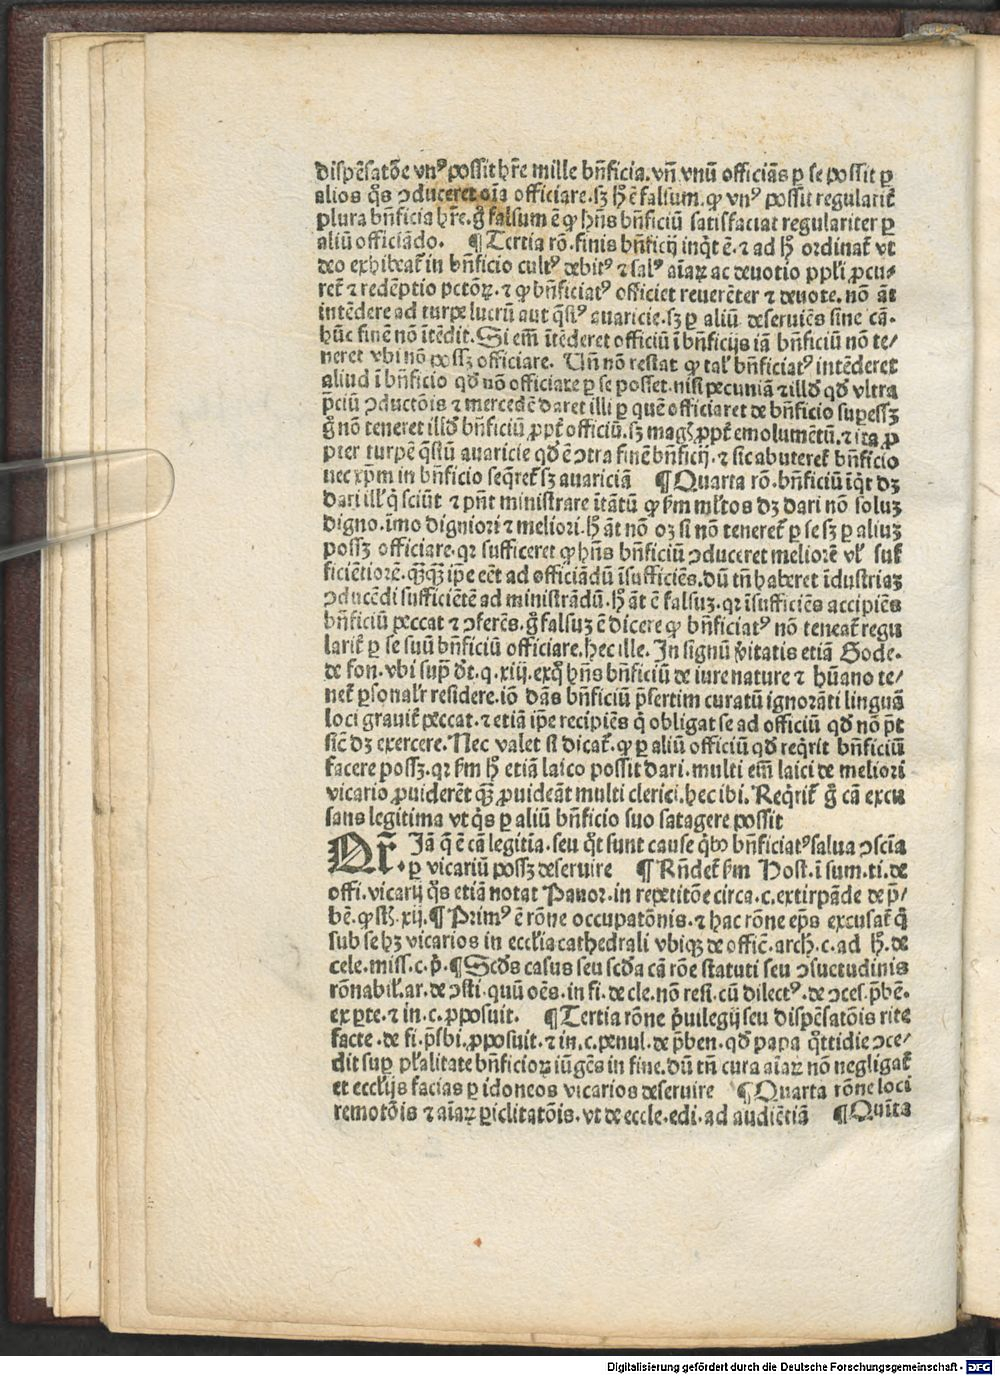 dispēsatōe vnꝰ possit hr̄e mille bn̄ficia. vn̄ vnū officiās ꝑ se possit ꝑ
alios q̄s ꝯduceret oīa officiare. sꝫ h̄ ē falsum. ꝙ vnꝰ possit regularit̄
plura bn̄ficia hr̄e. gͦ falsum ē ꝙ hn̄s bn̄ficiū satisfaciat regulariter ꝑ
aliū officiādo. ¶ Tertia rō. finis bn̄ficij inqͥt ē. ⁊ ad h̄ ordinat̄ vt
deo exhibeat̄ in bn̄ficio cultꝰ debitꝰ ⁊ salꝰ aīaꝝ ac deuotio ppl̄i ꝓcu⸗
ret̄ ⁊ redēptio pctōꝝ. ⁊ ꝙ bn̄ficiatꝰ officiet reuerēter ⁊ deuote. nō āt
intēdere ad turpe lucrū aut q̄stꝰ auaricie. sꝫ ꝑ aliū deseruiēs sine cā.
hūc finē nō ītēdit. Si em̄ ītēderet officiū ī bn̄ficijs iā bn̄ficiū nō te⸗
neret vbi nō possꝫ officiare. Vn̄ nō restat ꝙ tal̄ bn̄ficiatꝰ intēderet
aliud ī bn̄ficio qd̄ nō officiare ꝑ se posset. nisi pecuniā ⁊ illd̄ qd̄ vltra
p̄ciū ꝯductōis ⁊ mercedē daret illi ꝑ quē officiaret de bn̄ficio suꝑessꝫ
gͦ nō teneret illd̄ bn̄ficiū ꝓpt̄ officiū. sꝫ magꝭ ꝓpt̄ emolumētū. ⁊ ita ꝓ
pter turpē q̄stū auaricie qd̄ ē ꝯtra finē bn̄ficij. ⁊ sic abuteret̄ bn̄ficio
nec xp̄m in bn̄ficio seqret̄ sꝫ auariciā ¶ Quarta rō. bn̄ficiū īqͥt dꝫ
dari ill̄ qͥ sciūt ⁊ pn̄t ministrare ītātū ꝙ ẜm ml̄tos dꝫ dari nō soluꝫ
digno. īmo digniori ⁊ meliori. h̄ āt nō oꝫ si nō teneret̄ ꝑ se sꝫ ꝑ aliuꝫ
possꝫ officiare. qꝛ sufficeret ꝙ hn̄s bn̄ficiū ꝯduceret meliorē vl̄ suf
ficiētiorē. q̄ꝫq̄ꝫ ip̄e eēt ad officiādū īsufficiēs. dū tn̄ haberet īdustriaꝫ
ꝯducēdi sufficiētē ad ministrādū. h̄ āt ē falsuꝫ. qꝛ īsufficiēs accipiēs
bn̄ficiū peccat ⁊ ꝯferēs. gͦ falsuꝫ ē dicere ꝙ bn̄ficiatꝰ nō teneat̄ regu
larit̄ ꝑ se suū bn̄ficiū officiare. hec ille. In signū v̄itatis etiā Gode.
de fon. vbi sup̄ dt̄. q. xiij. exqͦ hn̄s bn̄ficiū de iure nature ⁊ hūano te⸗
net̄ ꝑsonal̄r residere. iō dās bn̄ficiū p̄sertim curatū ignorāti linguā
loci grauit̄ peccat. ⁊ etiā ip̄e recipiēs qͥ obligat se ad officiū qd̄ nō p̄t
sic̄ dꝫ exercere. Nec valet si dicat̄. ꝙ ꝑ aliū officiū qd̄ reqͥrit bn̄ficiū
facere possꝫ. qꝛ ẜm h̄ etiā laico possit dari. multi em̄ laici de meliori
vicario ꝓuiderēt q̄ꝫ ꝓuideāt multi clerici. hec ibi. Reqͥrit̄ gͦ cā excu
sans legitima vt qͥs ꝑ aliū bn̄ficio suo satagere possit
Qr̄. Jā q̄ ē cā legitīa. seu q̄t sunt cause qͥbꝰ bn̄ficiatꝰ salua ꝯscīa
ꝑ vicariū possꝫ deseruire ¶ Rn̄det̄ ẜm Host. ī sum. ti. de
offi. vicarij qͥs etiā notat Panor. in repetitōe circa. c. extirpāde de p̄⸗
bē. ꝙ sꝭ. xij. ¶ Primꝰ ē rōne occupatōnis. ⁊ hac rōne ep̄s excusat̄ qͥ
sub se hꝫ vicarios in eccl̄ia cathedrali vbiqꝫ de offic̄. arch̄. c. ad h̄. de
cele. miss. c. p̄. ¶ Scd̄s casus seu scd̄a cā rōe statuti seu ꝯsuetudinis
rōnabil̄. ar. de ꝯsti. quū oēs. in fi. de cle. nō resi. cū dilectꝰ. de ꝯces. p̄bē.
ex ꝑte. ⁊ in. c. ꝓposuit. ¶ Tertia rōne p̄uilegij seu dispēsatōis rite
facte. de fi. p̄sbi. ꝓposuit. ⁊ in. c. penul. de p̄ben. qd̄ papa q̄ttidie ꝯce⸗
dit suꝑ pl̄alitate bn̄ficioꝝ iūgēs in fine. dū tn̄ cura aīaꝝ nō negligat̄
et eccl̄ijs facias ꝑ idoneos vicarios deseruire ¶ Quarta rōne loci
remotōis ⁊ aīaꝝ ꝑiclitatōis. vt de eccle. edi. ad audiētiā ¶ Quīta
Digitalisierung gefördert durch die Deutsche Forschungsgemeinschaft - DFG